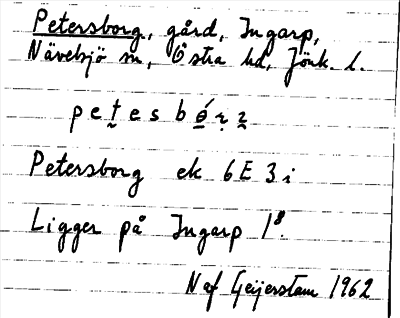 Petersborg, gård, Ingarp,
Nävelsjö sn, Östra hd, Jönk. l.
pet̰esbo̱ŕ̥z̰
Petersborg ek 6E 3i
Ligger på Ingarp 1⁸.
N af Geijerstam 1962